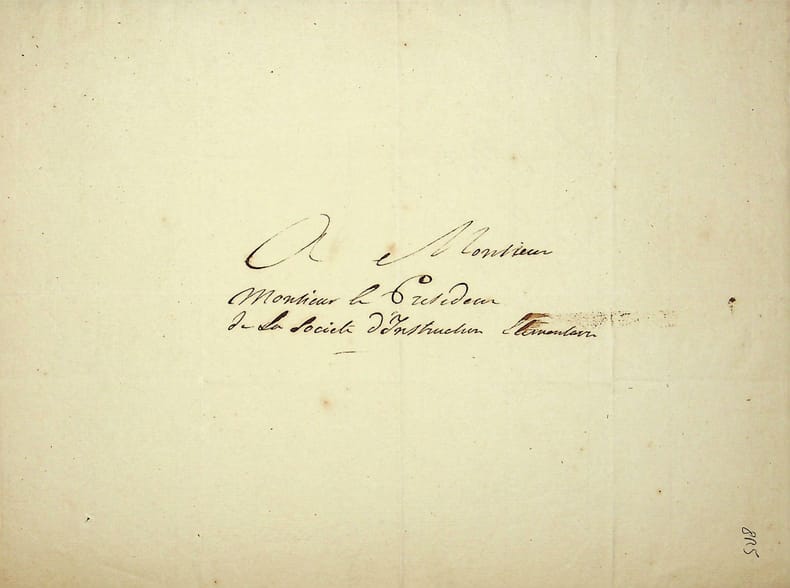 A Monsieur
Monsieur le President
de La Societé d'Instruction Elementaire